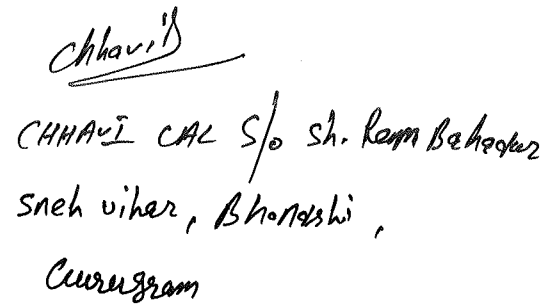 Chhavil
CHHAVI LAL S/o Sh. Ram Bahadur
Sneh vihar, Bhondshi,
Gurugram